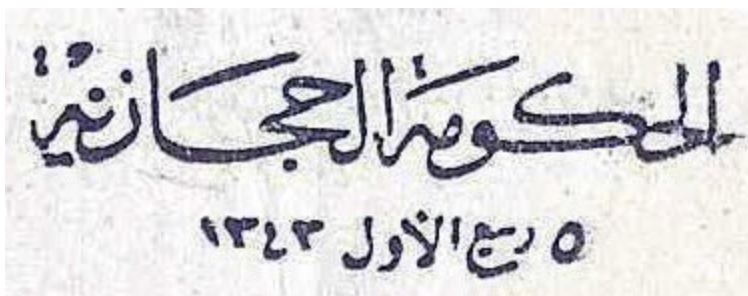 الحكومة الحجازية
٥ ربيع الأول ١٣٤٣